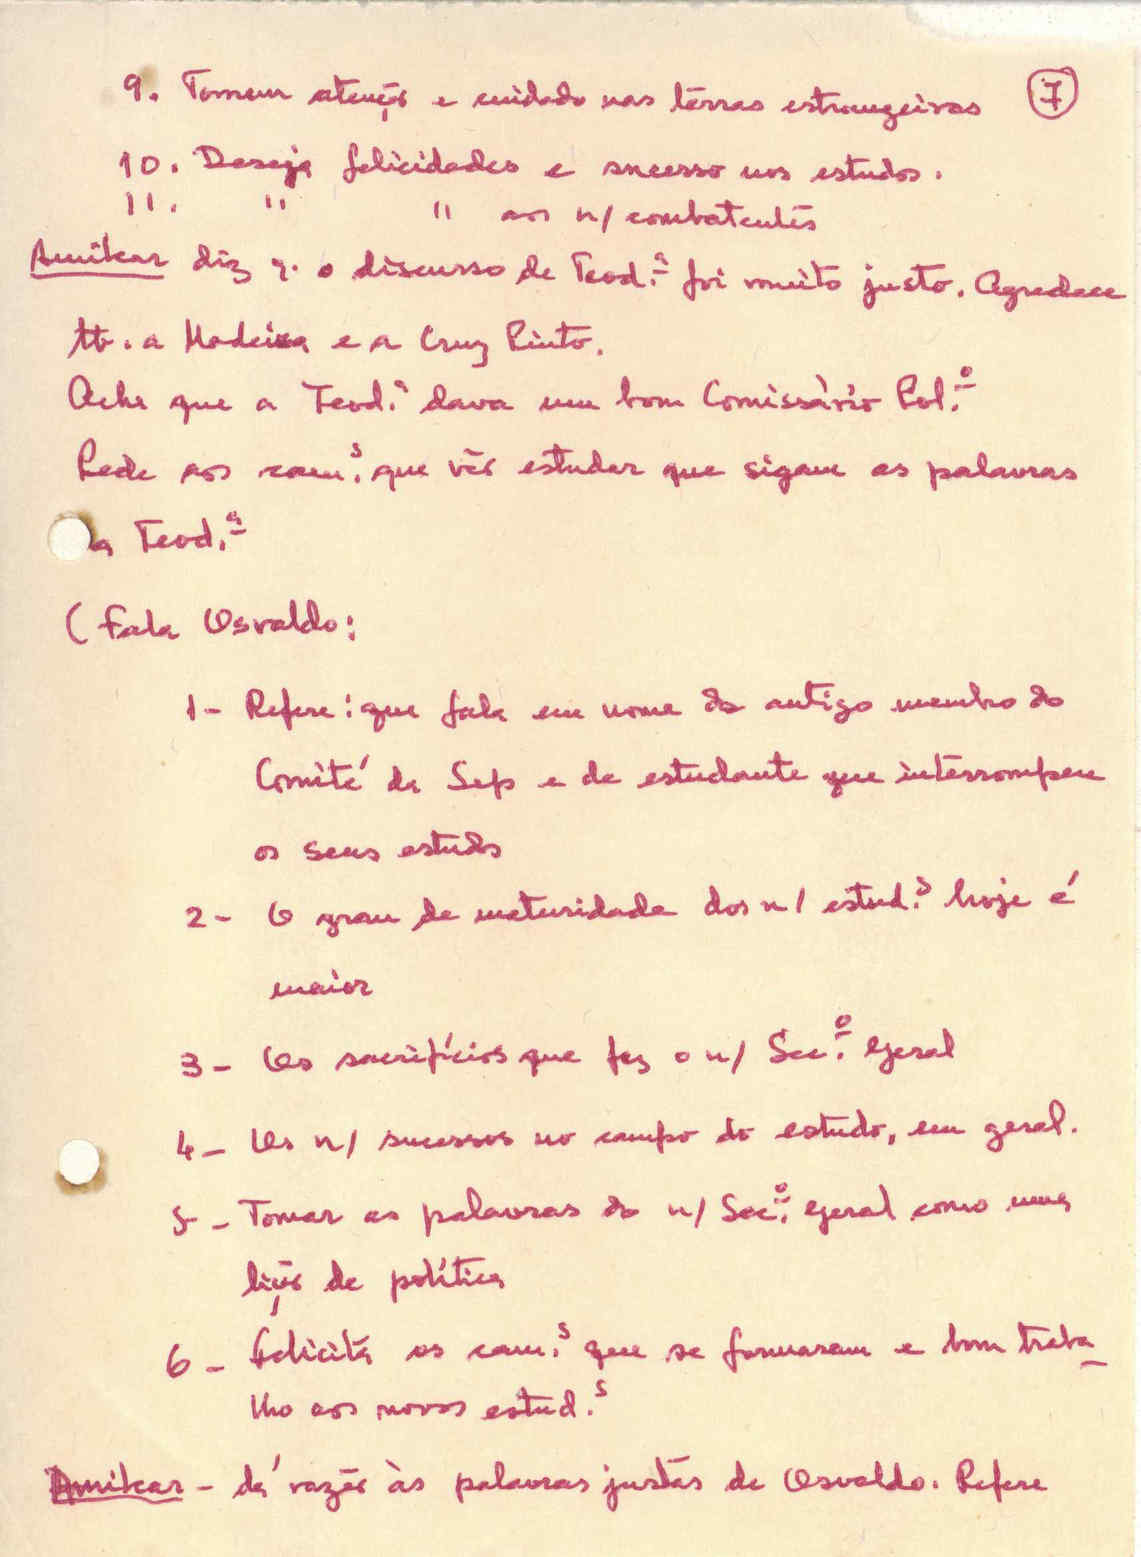 7
9. Tomem atenção e cuidado nas terras estrangeiras
10. Deseja felicidades e sucesso nos estudos.
11. " " aos n/ combatentes
Amílcar diz q. o discurso de Teod.ª foi muito justo. Agradece
tb. a Madeira e a Cruz Pinto.
Acha que a Teod.ª dava um bom Comissário Pol.º
Pede aos cam.s que vão estudar que sigam as palavras
da Teod.ª
(Fala Osvaldo:
1- Refere: que fala em nome do antigo membro do
Comité de Sep e de estudante que interrompeu
os seus estudos
2- O grau de maturidade dos n/ estud.s hoje é
maior
3- Os sacrifícios que fez o n/ Sec.º Geral
4- Os n/ sucessos no campo do estudo, em geral.
5- Tomar as palavras do n/ Sec.º Geral como uma
lição de política
6- Felicita os cam.s que se formaram e bom traba_
lho aos novos estud.s
Amílcar - dá razão às palavras justas de Osvaldo. Refere